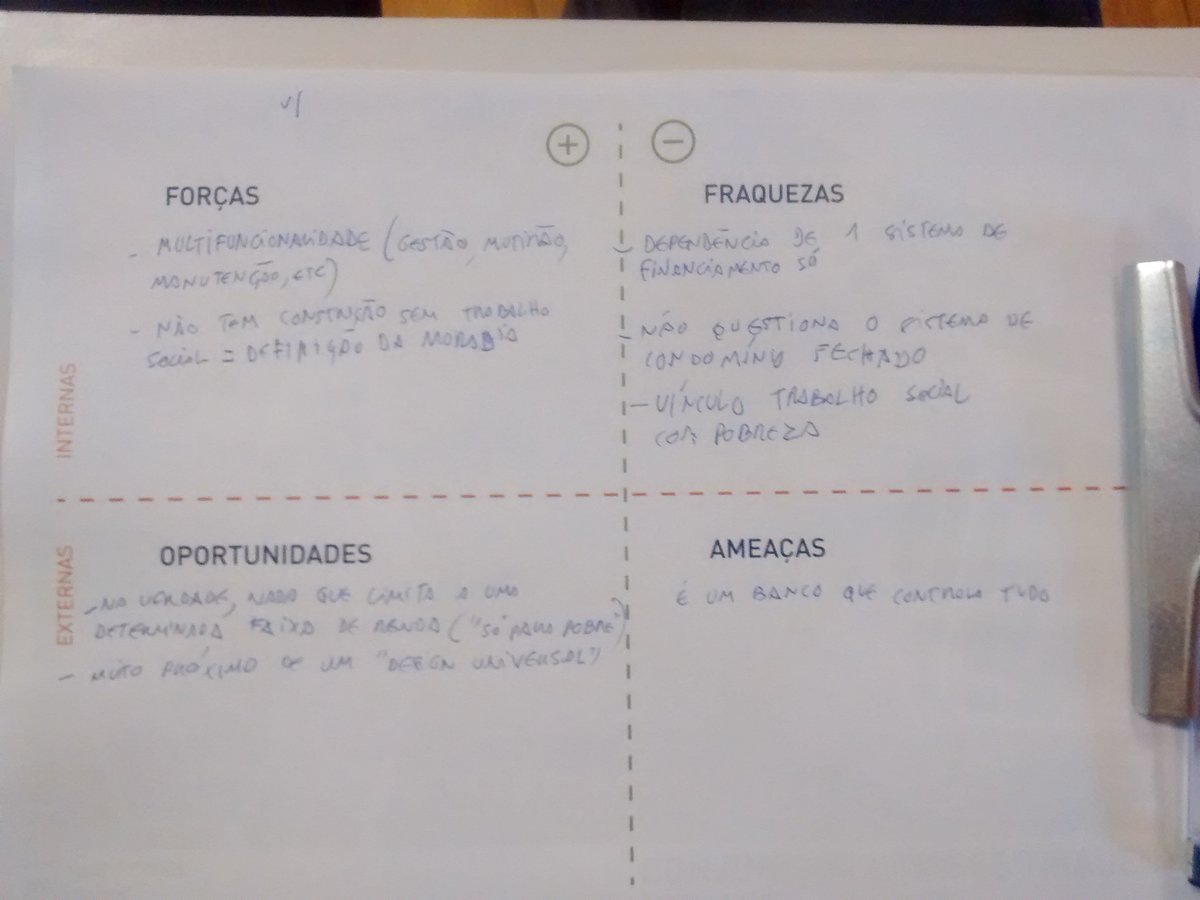 v/
+
−
FORÇAS
- MULTIFUNCIONALIDADE (GESTÃO, MUTIRÃO,
MANUTENÇÃO, ETC)
- NÃO TEM CONSTRUÇÃO SEM TRABALHO
SOCIAL = DEFINIÇÃO DA MORADIA
FRAQUEZAS
- DEPENDÊNCIA DE 1 SISTEMA DE
FINANCIAMENTO SÓ
- NÃO QUESTIONA O SISTEMA DE
CONDOMÍNIO FECHADO
- VÍNCULO TRABALHO SOCIAL
COM POBREZA
INTERNAS
EXTERNAS
OPORTUNIDADES
- NA VERDADE, NADA QUE LIMITA A UMA
DETERMINADA FAIXA DE RENDA ("SÓ PARA POBRE")
- MUITO PRÓXIMO DE UM "DESIGN UNIVERSAL"
AMEAÇAS
É UM BANCO QUE CONTROLA TUDO